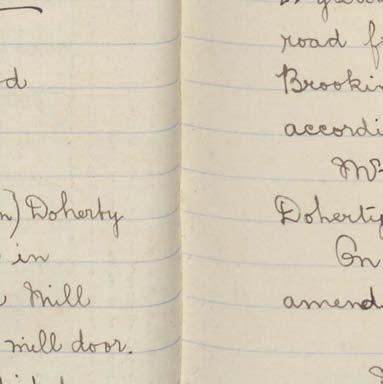 d
n) Doherty
in
Mill
mill door.
road f
Brookin
accordi
Mr
Doherty
On
amend